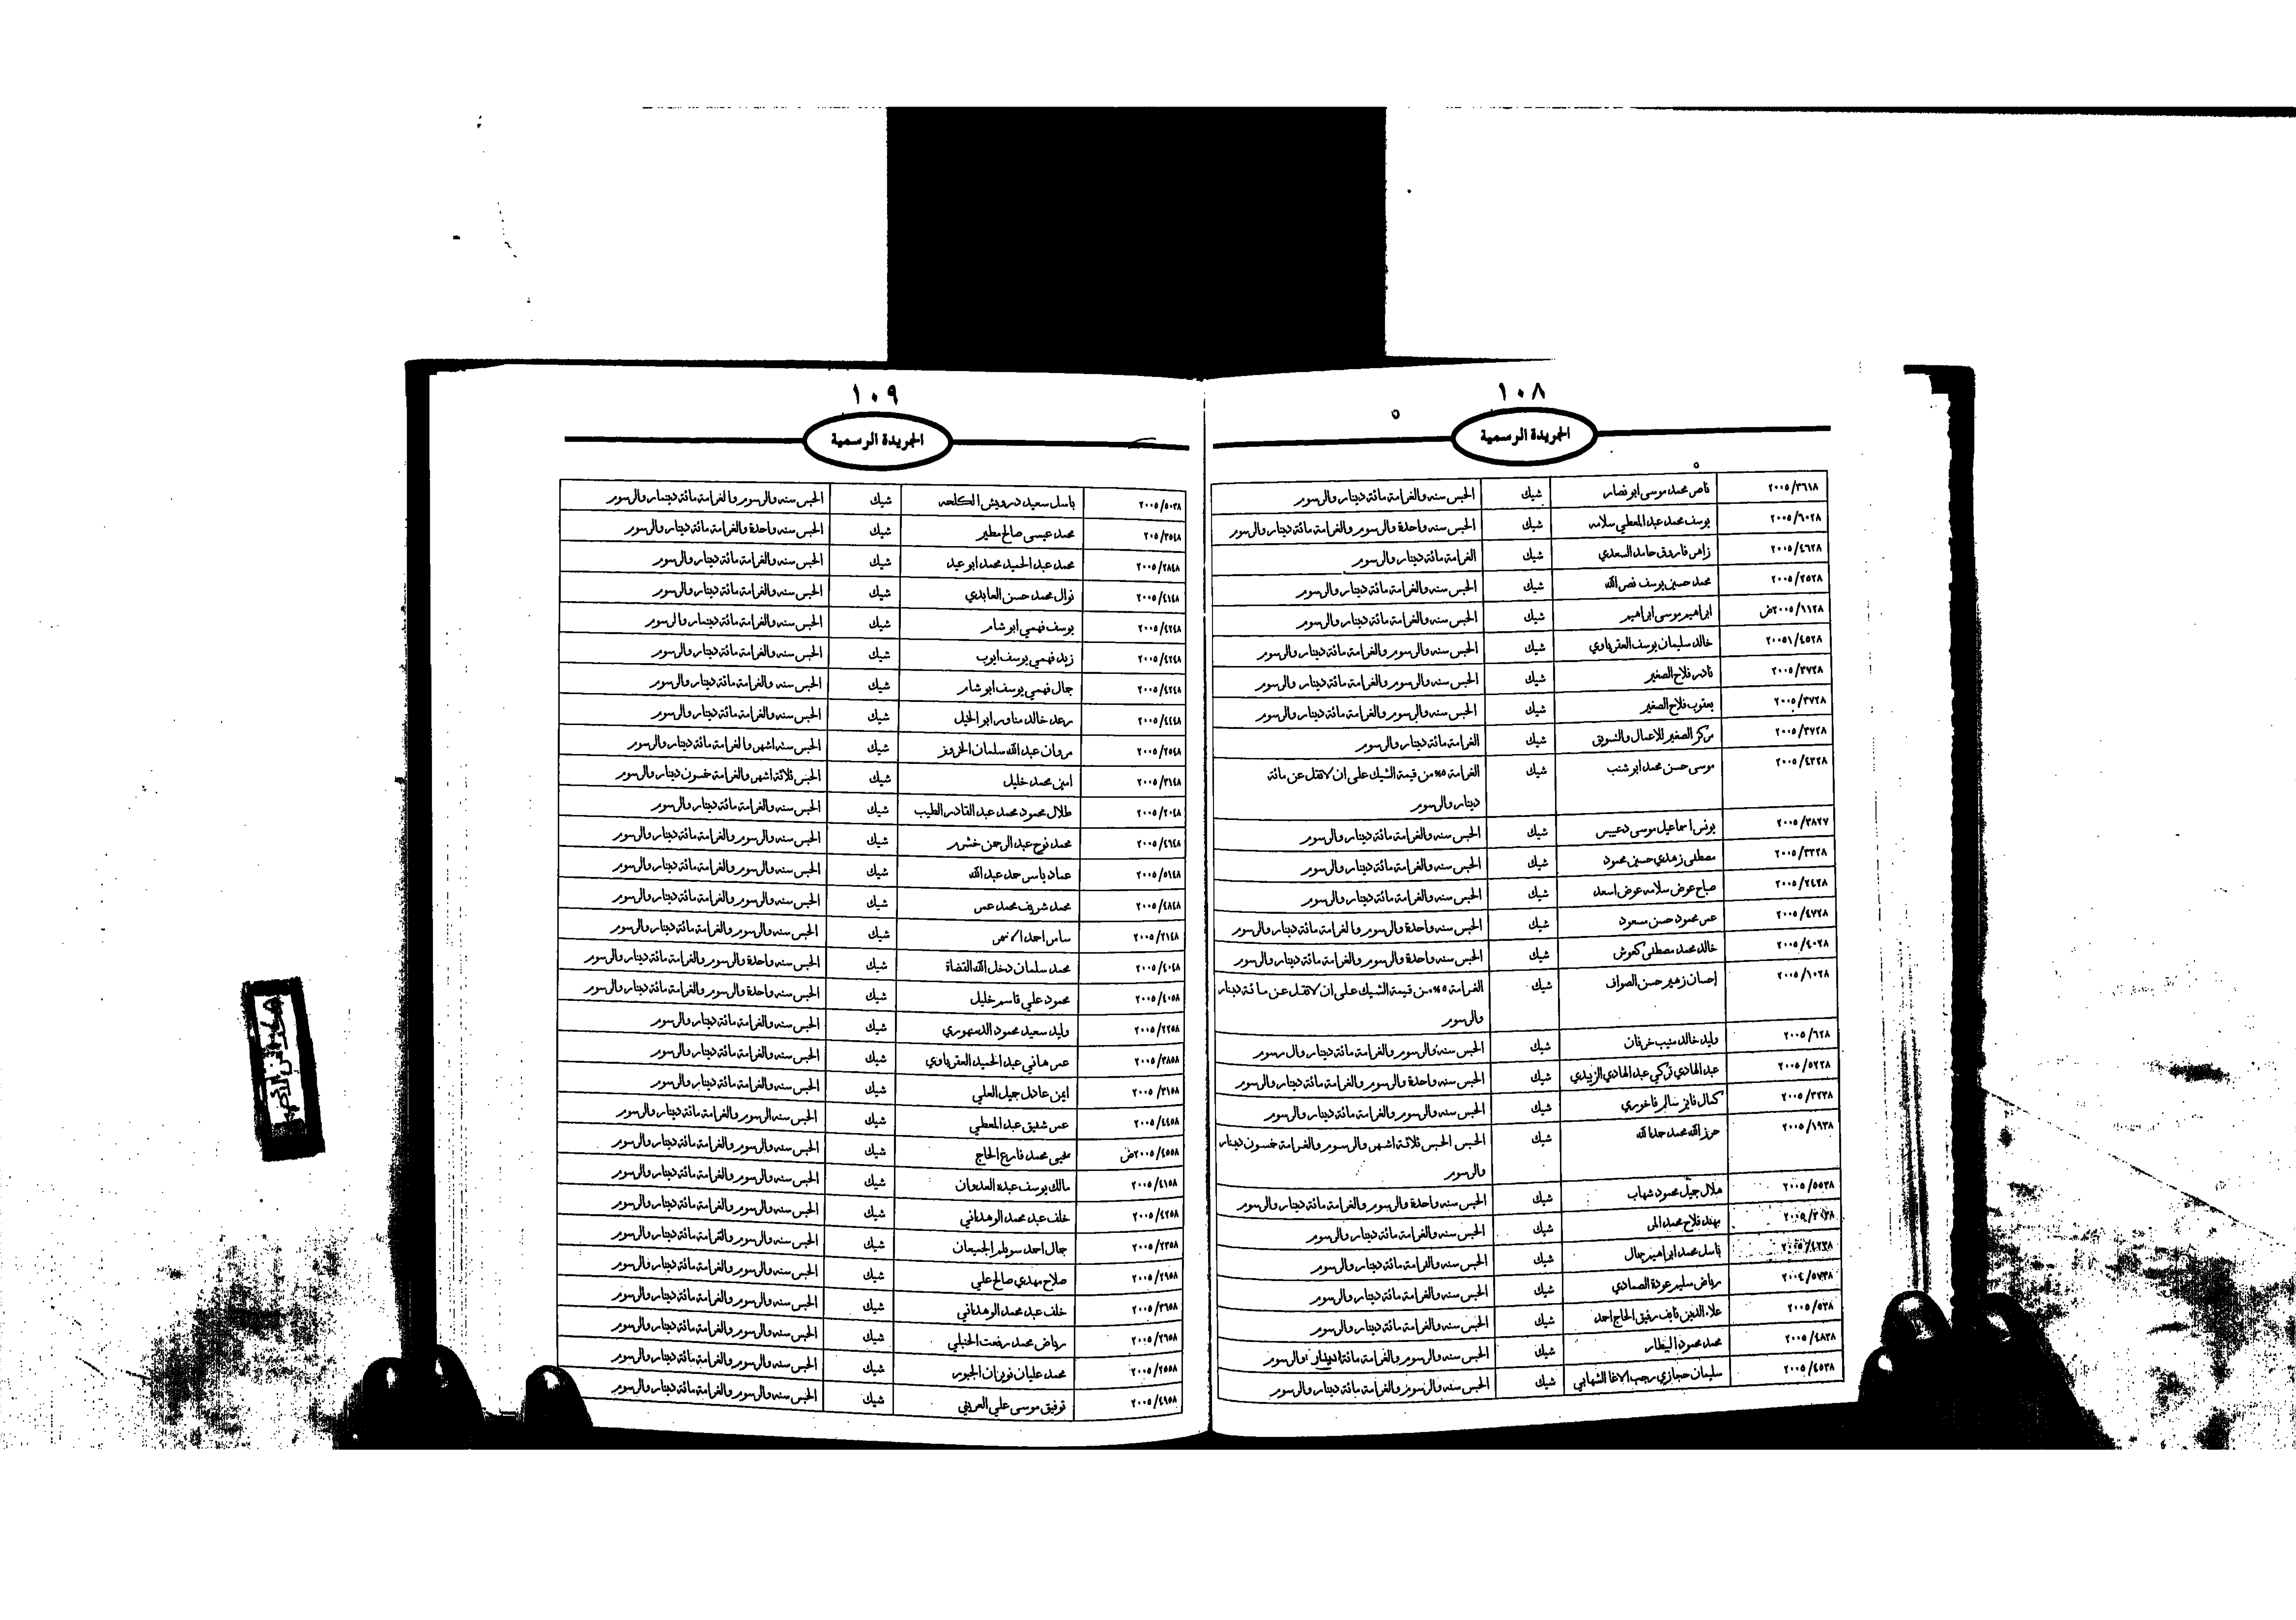 ١٠٨
الجريدة الرسمية
٢٠٠٥/٣٦١٨ ناصر محمد موسى ابو نصار شيك الحبس سنه والغرامة مائة دينار والرسوم
٢٠٠٥/٦٠٢٨ يوسف محمد عبد المعطي سلامه شيك الحبس سنه واحدة والرسوم والغرامة مائة دينار والرسوم
٢٠٠٥/٤٦٢٨ زاهر فاروق حامد السعدي شيك الغرامة مائة دينار والرسوم
٢٠٠٥/٢٥٢٨ محمد حسين يوسف نصر الله شيك الحبس سنه والغرامة مائة دينار والرسوم
٢٠٠٥/١١٢٨ض ابراهيم موسى ابراهيم شيك الحبس سنه والغرامة مائة دينار والرسوم
٢٠٠٥١/٤٥٢٨ خالد سليمان يوسف العقرباوي شيك الحبس سنه والرسوم والغرامة مائة دينار والرسوم
٢٠٠٥/٣٧٢٨ نادر فلاح الصغير شيك الحبس سنه والرسوم والغرامة مائة دينار والرسوم
٢٠٠٥/٣٧٢٨ يعقوب فلاح الصغير شيك الحبس سنه والرسوم والغرامة مائة دينار والرسوم
٢٠٠٥/٣٧٢٨ مركز الصغير للاعمال والتسويق شيك الغرامة مائة دينار والرسوم
٢٠٠٥/٤٣٢٨ موسى حسن محمد ابو شنب شيك الغرامة ٥% من قيمة الشيك على ان لا تقل عن مائة
دينار والرسوم
٢٠٠٥/٣٨٢٧ يونس اسماعيل موسى دعيبس شيك الحبس سنه والغرامة مائة دينار والرسوم
٢٠٠٥/٣٣٢٨ مصطفى زهدي حسين محمود شيك الحبس سنه والغرامة مائة دينار والرسوم
٢٠٠٥/٢٤٢٨ صباح عوض سلامه عوض اسعد شيك الحبس سنه والغرامة مائة دينار والرسوم
٢٠٠٥/٤٧٢٨ عمر محمود حسن مسعود شيك الحبس سنه واحدة والرسوم والغرامة مائة دينار والرسوم
٢٠٠٥/٤٠٢٨ خالد محمد مصطفى كعوش شيك الحبس سنه واحدة والرسوم والغرامة مائة دينار والرسوم
٢٠٠٥/١٠٢٨ إحسان زهير حسن الصواف شيك الغرامة ٥% من قيمة الشيك على ان لا تقل عن مائة دينار
والرسوم
٢٠٠٥/٦٢٨ وليد خالد منيب خرفان شيك الحبس سنه والرسوم والغرامة مائة دينار والرسوم
٢٠٠٥/٥٢٢٨ عبد الهادي تركي عبد الهادي الزبيدي شيك الحبس سنه واحدة والرسوم والغرامة مائة دينار والرسوم
٢٠٠٥/٣٢٣٨ كمال فايز سالم فاخوري شيك الحبس سنه والرسوم والغرامة مائة دينار والرسوم
٢٠٠٥/١٩٣٨ حرز الله محمد حمدالله شيك الحبس الحبس ثلاثة اشهر والرسوم والغرامة خمسون دينار
والرسوم
٢٠٠٥/٥٥٣٨ هلال جميل محمود شهاب شيك الحبس سنه واحدة والرسوم والغرامة مائة دينار والرسوم
مهند فلاح محمد شيك الحبس سنه والغرامة مائة دينار والرسوم
باسل محمد ابراهيم جمال شيك الحبس سنه والغرامة مائة دينار والرسوم
٢٠٠٤/٥٧٣٨ رياض سليم عودة الصمادي شيك الحبس سنه والغرامة مائة دينار والرسوم
٢٠٠٥/٥٣٨ علاء الدين نايف رفيق الحاج احمد شيك الحبس سنه والغرامة مائة دينار والرسوم
٢٠٠٥/٤٨٣٨ محمد محمود البيطار شيك الحبس سنه والرسوم والغرامة مائة دينار والرسوم
٢٠٠٥/٤٥٣٨ سليمان حجازي رجب الاغا الشهابي شيك الحبس سنه والرسوم والغرامة مائة دينار والرسوم
١٠٩
الجريدة الرسمية
٢٠٠٥/٥٠٣٨ باسل سعيد درويش الكلحه شيك الحبس سنه والرسوم والغرامة مائة دينار والرسوم
٢٠٥/٣٥٤٨ محمد عيسى صالح مطير شيك الحبس سنه واحدة والغرامة مائة دينار والرسوم
٢٠٠٥/٢٨٤٨ محمد عبد الحميد محمد ابو عيد شيك الحبس سنه والغرامة مائة دينار والرسوم
٢٠٠٥/٤١٤٨ نوال محمد حسن العابدي شيك الحبس سنه والغرامة مائة دينار والرسوم
٢٠٠٥/٤٢٤٨ يوسف فهمي ابو شام شيك الحبس سنه والغرامة مائة دينار والرسوم
٢٠٠٥/٤٢٤٨ زيد فهمي يوسف ايوب شيك الحبس سنه والغرامة مائة دينار والرسوم
٢٠٠٥/٤٢٤٨ جمال فهمي يوسف ابو شام شيك الحبس سنه والغرامة مائة دينار والرسوم
٢٠٠٥/٤٤٤٨ رعد خالد مناور ابو الخيل شيك الحبس سنه والغرامة مائة دينار والرسوم
٢٠٠٥/٢٥٤٨ مروان عبد الله سلمان الخروز شيك الحبس سته اشهر والغرامة مائة دينار والرسوم
٢٠٠٥/٣١٤٨ امين محمد خليل شيك الحبس ثلاثة اشهر والغرامة خمسون دينار والرسوم
٢٠٠٥/٢٠٤٨ طلال محمود محمد عبد القادر الطيب شيك الحبس سنه والغرامة مائة دينار والرسوم
٢٠٠٥/٤٦٤٨ محمد نوح عبد الرحمن خشرم شيك الحبس سنه والرسوم والغرامة مائة دينار والرسوم
٢٠٠٥/٥١٤٨ عماد ياسر حمد عبد الله شيك الحبس سنه والرسوم والغرامة مائة دينار والرسوم
٢٠٠٥/٤٨٤٨ محمد شريف محمد عمر شيك الحبس سنه والرسوم والغرامة مائة دينار والرسوم
٢٠٠٥/٢١٤٨ سامر احمد شيك الحبس سنه والرسوم والغرامة مائة دينار والرسوم
٢٠٠٥/٤٠٤٨ محمد سلمان دخل الله القضاة شيك الحبس سنه واحدة والرسوم والغرامة مائة دينار والرسوم
٢٠٠٥/٤٠٥٨ محمود علي قاسم خليل شيك الحبس سنه واحدة والرسوم والغرامة مائة دينار والرسوم
٢٠٠٥/٢٢٥٨ وليد سعيد محمود الدمنهوري شيك الحبس سنه والغرامة مائة دينار والرسوم
٢٠٠٥/٣٨٥٨ عمر هاني عبد الحميد العقرباوي شيك الحبس سنه والغرامة مائة دينار والرسوم
٢٠٠٥/٣١٥٨ ايمن عادل جميل العلمي شيك الحبس سنه والغرامة مائة دينار والرسوم
٢٠٠٥/٤٤٥٨ عمر شفيق عبد المعطي شيك الحبس سنه الرسوم والغرامة مائة دينار والرسوم
٢٠٠٥/٤٥٥٨ض يحيى محمد فارع الحاج شيك الحبس سنه والرسوم والغرامة مائة دينار والرسوم
٢٠٠٥/٤١٥٨ مالك يوسف عبده العدوان شيك الحبس سنه والرسوم والغرامة مائة دينار والرسوم
٢٠٠٥/٤٢٥٨ خلف عبد محمد الوهداني شيك الحبس سنه والرسوم والغرامة مائة دينار والرسوم
٢٠٠٥/٢٣٥٨ جمال احمد سويلم الجميعان شيك الحبس سنه والرسوم والغرامة مائة دينار والرسوم
٢٠٠٥/٢٩٥٨ صلاح مهدي صالح علي شيك الحبس سنه والرسوم والغرامة مائة دينار والرسوم
٢٠٠٥/٣٦٥٨ خلف عبد محمد الوهداني شيك الحبس سنه والرسوم والغرامة مائة دينار والرسوم
٢٠٠٥/٢٦٥٨ رياض محمد رفعت الحنبلي شيك الحبس سنه والرسوم والغرامة مائة دينار والرسوم
٢٠٠٥/٢٥٥٨ محمد عليان نويران الجبور شيك الحبس سنه والرسوم والغرامة مائة دينار والرسوم
٢٠٠٥/٤٩٥٨ توفيق موسى علي العريني شيك الحبس سنه والرسوم والغرامة مائة دينار والرسوم